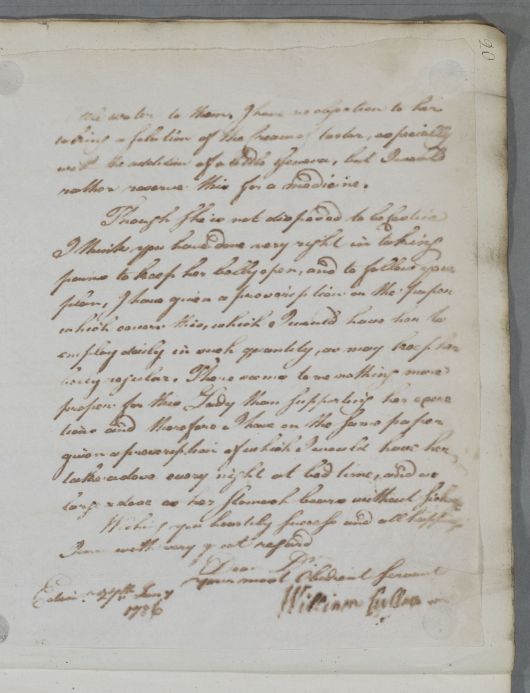 20
the water to them, I have no objection to her
taking a solution of the cream of tartar, especially
with the addition of a little Geneva, but I would
rather reserve this for a medicine.
Though She is not disposed to be costive
I think you have done very right in taking
pains to keep her belly open, and to follow your
plan, I have given a prescription on the paper
which covers this, which I would have her to
employ daily in such quantity, as may keep her
belly regular. There seems to me nothing more
proper for this Lady than supporting her
and therefore I have on the same paper
given a prescription of which I would have her
take a dose every night at bed time, and as
large a dose as her stomach bears without
Wishing you heartily success and all happiness
I am with very great regard
Dear Dr
Your most Obedient Servant
William Cullen
Edinr. 27th Jany
1786